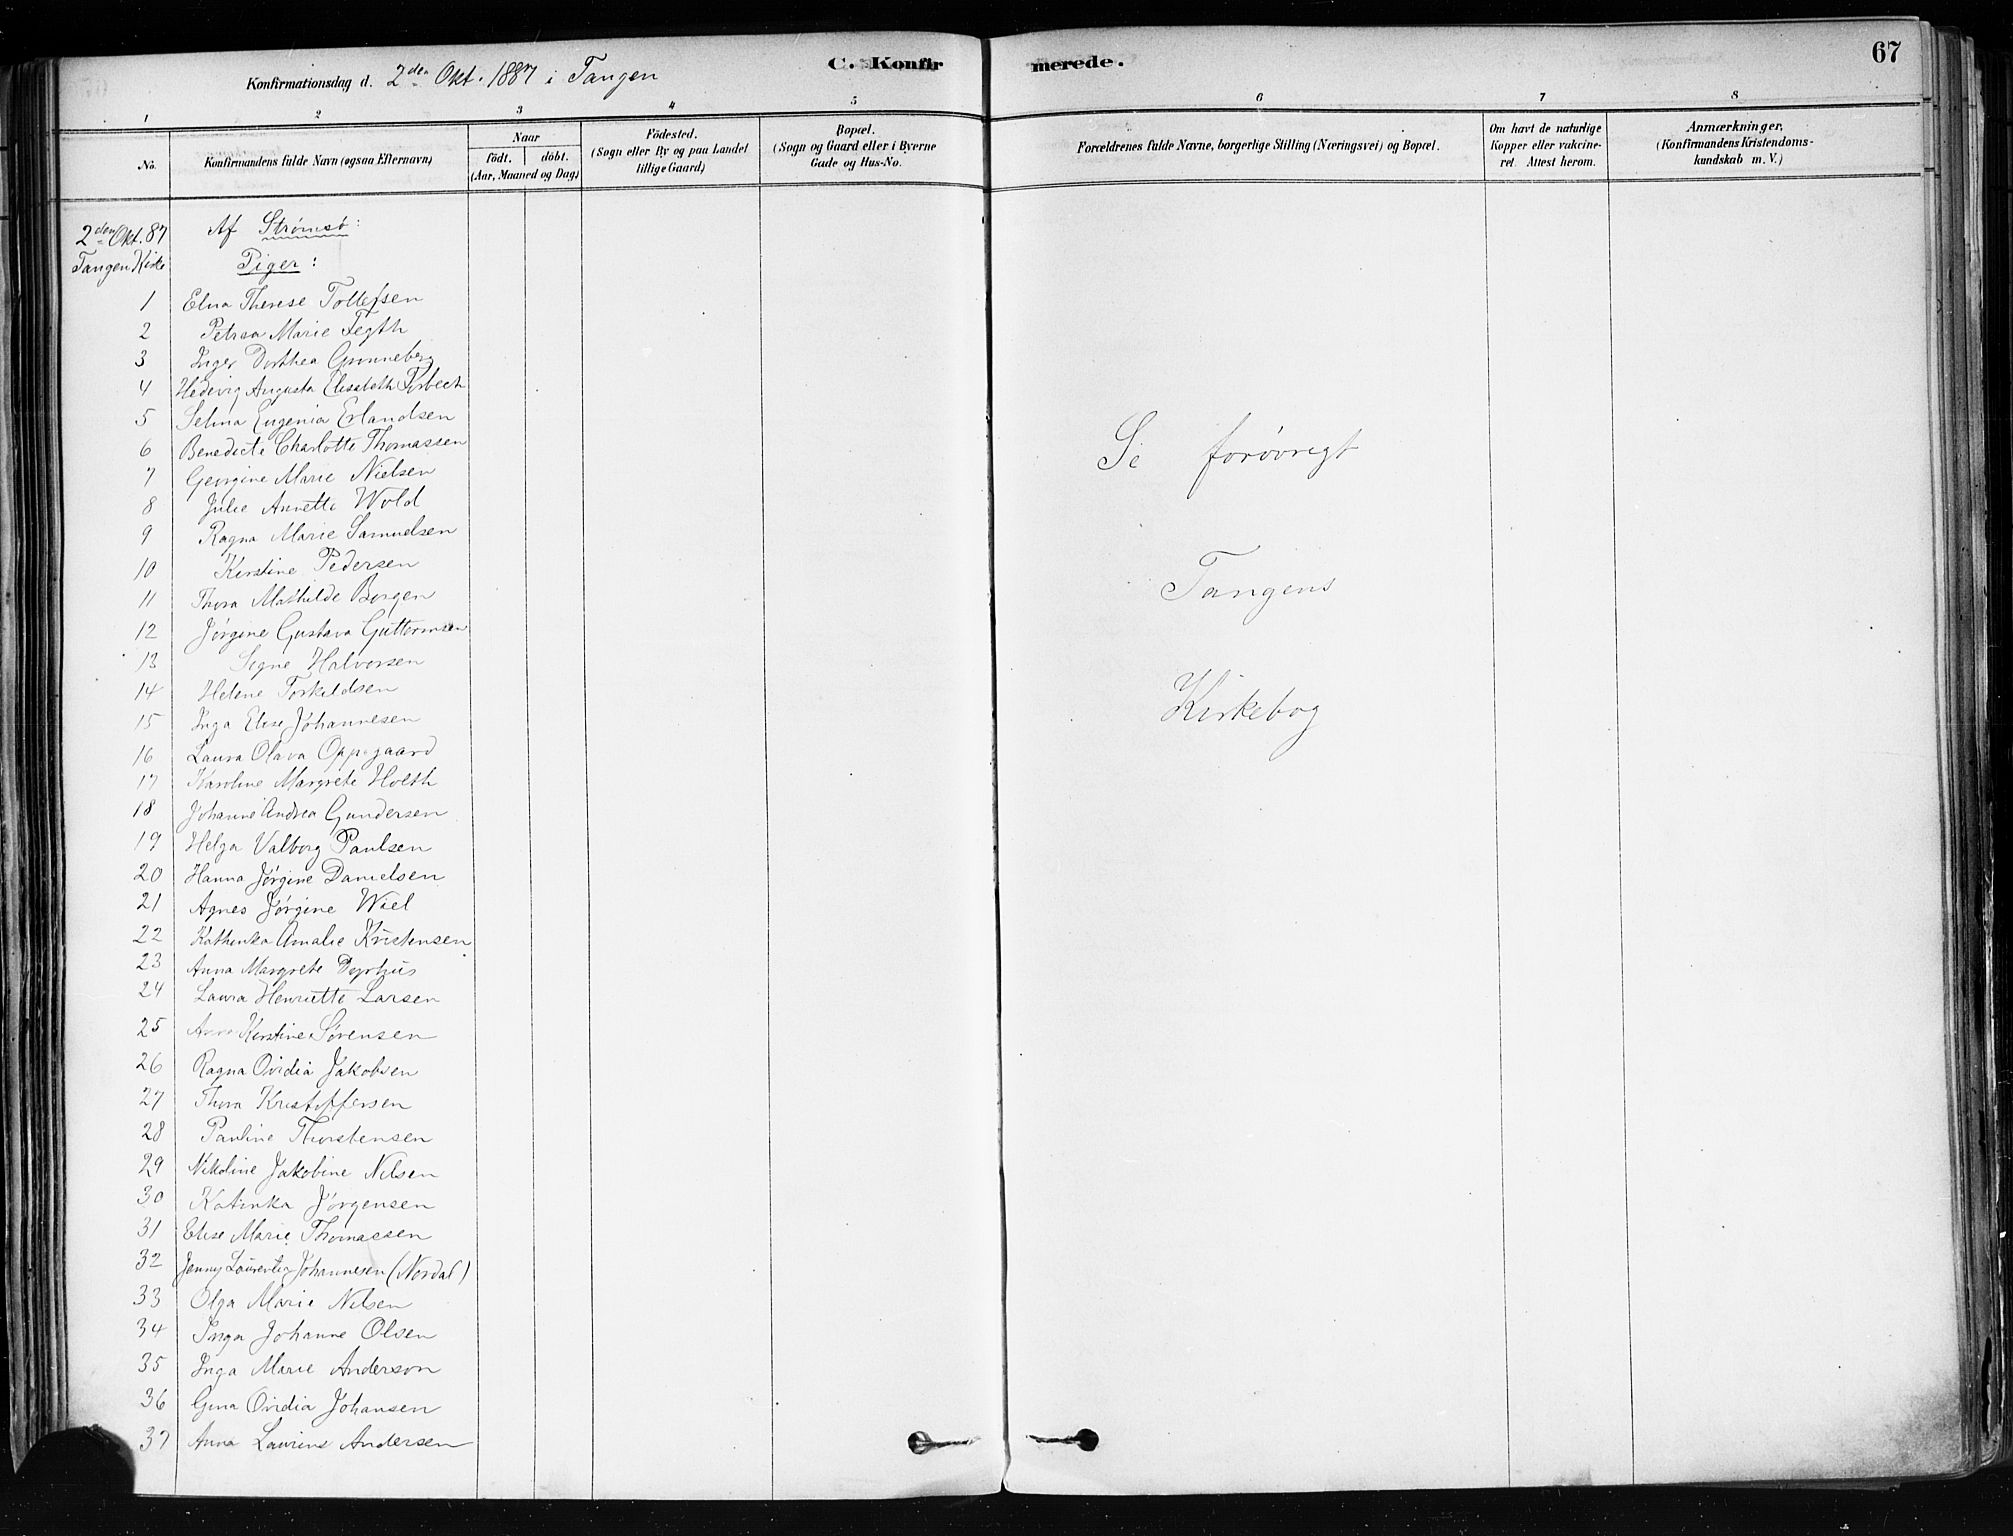 67
C. Konfirmerede.
Konfirmationsdag d. 2den Okt. 1887 i Tangen
1 2 3 4 5 6 7 8
No.
Konfirmandens fulde Navn (ogsaa Efternavn)
Naar
födt. döbt.
(Aar, Maaned og Dag)
Födested.
(Sogn eller By og paa Landet
tillige Gaard)
Bopæl.
(Sogn og Gaard eller i Byerne
Gade og Hus-No.
Forældrenes fulde Navne, borgerlige Stilling (Næringsvei) og Bopæl.
Om havt de naturlige
Kopper eller vakcine-
ret. Attest herom.
Anmærkninger,
(Konfirmandens Kristendoms-
kundskab m. V.)
2den Okt. 87
Tangen Kirke
Af Strømsö:
Piger:
1 Elna Therese Tollefsen
2 Petrea Marie Tegth
3 Inger Dorthea Grønneberg
4 Hedevig Augusta Elisabeth Torbech
5 Selma Eugenia Erlandsen
6 Benedicte Charlotte Thomassen
7 Georgine Marie Nielsen
8 Julie Annette Wold
9 Ragna Marie Samuelsen
10 Kirstine Pedersen
11 Thora Mathilde Borgen
12 Jørgine Gustava Guttormsen
13 Signe Halvorsen
14 Helene Torkildsen
15 Inga Elise Johannesen
16 Laura Olava Oppegaard
17 Karoline Margrete Holth
18 Johanne Andrea Gundersen
19 Helga Valborg Paulsen
20 Hanna Jørgine Danielsen
21 Agnes Jørgine Wiel
22 Kathinka Amalie Kristensen
23 Anna Margrete Dyrhus
24 Laura Henriette Larsen
25 Anna Kirstine Sørensen
26 Ragna Ovidia Jakobsen
27 Thora Kristoffersen
28 Pauline Thorstensen
29 Nikoline Jakobine Nilsen
30 Katinka Jörgensen
31 Elise Marie Thomassen
32 Jenny Laurentia Johannesen (Nordal)
33 Olga Marie Nilsen
34 Inga Johanne Olsen
35 Inga Marie Anderson
36 Gina Ovidia Johansen
37 Anna Laurins Andersen
Se forövrigt
Tangens
Kirkebog